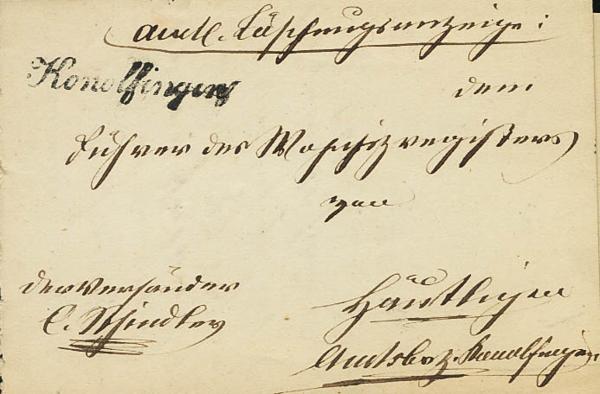 amtl. Löschungsanzeige:
Konolfingen
dem
Führer des Wohnsizregisters
von
Der Versänder
C. Schindler
Häutligen
Amtsbez. Konolfingen.